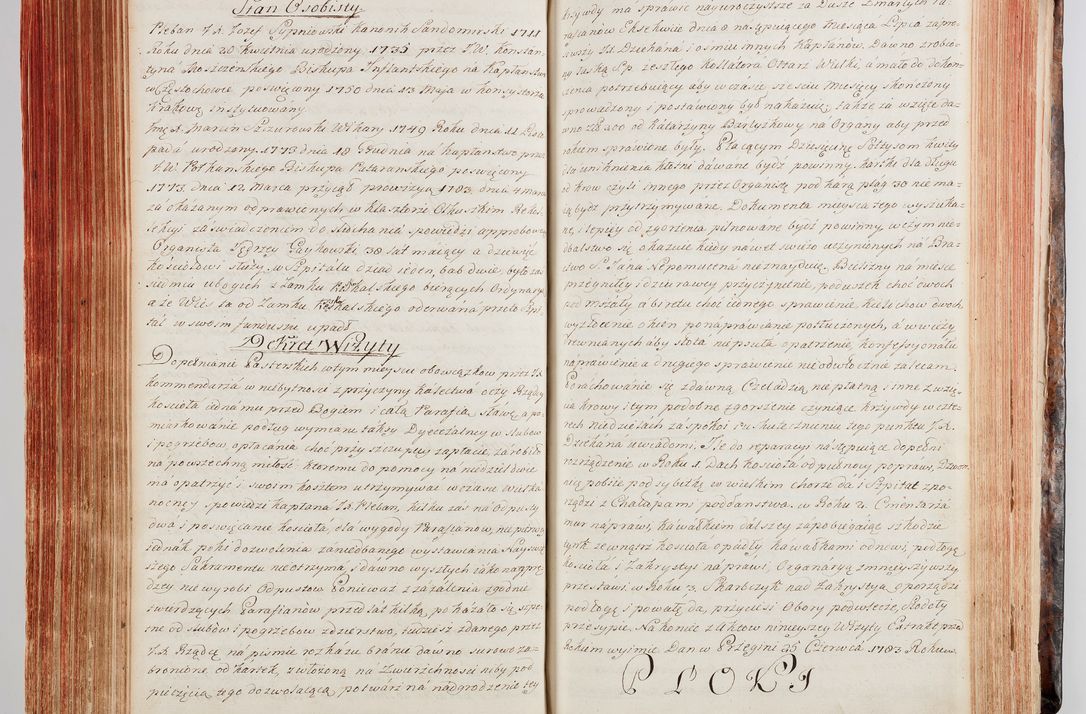 Stan Osobisty
Pleban J.X. Jozef Stępniowski kanonik Sandomirski 1711
Roku dnia 20 kwietnia urodzony 1735 przez J.W. Konstan-
tyna Moszczenskiego Biskupa Inflantskiego na Kapłanstwo
w Częstochowie poswięcony 1750 dnia 13 Maja w konsystorzu
krakows. instytuowany
Imć X. Marcin Szczurowski Wikary 1749 Roku dnia 11 Listo
pada urodzony, 1773 dnia 18 Grudnia na kapłanstwo przez
J.W. Potkanskiego Biskupa Patarenskiego poswięcony
1773 dnia 12 Marca przyiął prowizyą 1783 dnia 4 Marca
za okazanym odprawionych w klasztorze Olkuszkim Rekol-
lekcyi zaswiadczeniem do słuchania spowiedzi approbowany
Organista Jędrzej Gaykowski 38 lat maiący a dziewięć
kosciołowi służy, w Szpitalu dziad ieden, bab dwie, było zas
siedmiu ubogich z Zamku kalskiego bierących Ordynarya
a że Wieś ta od Zamku kalskiego oderwana przeto Szpi
tal w swoim funduszu upadł
Dekret Wizyty
Dopełnianie Pasterskich w tym mieyscu obowiązkow przez J.X.
kommendarza w niebytnosci z przyczyny kalectwa oczu Rządcy
koscioła iedna mu przed Bogiem i całą Parafią sławę, a po
miarkowanie podług wymiaru taksy Dyecezalney w slubow
i pogrzebow opłacania choć przy szczupłey zapłacie, zarobiło
na powszechną miłość ktoremu do pomocy na niedziel dwie
ma opatrzyć i swoim kosztem utrzymywać w czasie Wielka
nocney spowiedzi kapłana J.X. Pleban, kilku zas na Odpusty
dwa i poswięcanie koscioła, dla wygody Parafianow, niepierwey
iednak poki dozwolenia zaniedbanego wystawiania Nayswię
szego Sakramentu nie otrzyma, i dawno wyszłych iako naypręd
dzey nie wyrobi Odpustow Ponieważ z zażalenia zgodnie
twierdzących Parafianow przed lat kilką, pokazało się szpe-
tne od slubow i pogrzebow zdzierstwo, tudzież zdanego przez
J.X. Rządcę na pismie rozkazu branie dawno surowo za-
bronione od kartek, zwłożoną na Zwierzchnosci niby pod
pieczęcią tego dozwalaiącą potwarz na nadgrodzenie tey
krzywdy ma sprawić nayuroczystsze za Dusze Zmarłych Pa-
rafianow Exekwie dnia 8 następuiącego Miesiąca Lipca zapro
siwszy JX Dziekana i osmiu innych Kapłanow. Dawno zrobio-
ny łaską Sp. zeszłego kollatora Ołtarz Wielki, a mało do dokon
czenia potrzebuiący aby w czasie szesciu Miesięcy skończony
sprowadzony i postawiony był nakazuię, także za wzięte da-
wno złt 200 od Katarzyny Bartyzkowy na Organy aby przed
rokiem sprawione były. Płacącym Dziesięcinę Sołtysom kwity
dla uniknienia kłotni dawane bydź powinny, kartki dla długu
od krow czyli innego przez Organistę pod karą plag 30 nie ma-
ią bydź przytrzymywane. Dokumenta mieysca tego wyszuka-
ne, i lepiey od zgorzenia pilnowane bydź powinny, w czym nie-
dbalstwo się okazuie kiedy nawet swieżo uczynionych na Bra-
ctwo S. Jana Nepomucena nieznayduię. Bielizny na mieysce
przegniłey i dziurawey przyczynienie, poduszek choć dwoch
pod mszały a biretu choć iednego sprawienie kielichow dwoch
wyzłocenie okien ponaprawianie potłuczonych, a w wieży
drewnianych aby słota niepsuła opatrzenie, konfessyonału
naprawienie a drugiego sprawienie nieodwłocznie zalecam.
Porachowanie się z dawną Czeladzią niepłatną, i inne z wzię-
cia krowy i tym podobne zgorszenie czyniące krzywdy w czte-
rech niedzielach zaspokoi i o skutecznieniu tego punktu J.X.
Dziekana uwiadomi. Te do reparacyi następuiące dopełni
rozrządzenie w Roku 1. Dach koscioła od pułnocy poprawi, Dzwon
nicę pobiie pod sybitką w wielkim chorze da, i Szpital zpo-
rządzi z Chałupami poddanstwa. w Roku 2. Cmentarza
mur naprawi, kawałkiem dalszey zapobiegaiąc szkodzie
tynk zewnątrz koscioła opadły kawałkami odnowi, podłogę
koscioła i Zakrystyi naprawi, Organaryą zmnieyszywszy
przestawi. w Roku 3. Skarbczyk nad Zakrystyą oporządzi
podłogę i powałę da, przyciesi Obory podwlecze, Stodoły
przesypie. Nakoniec z Aktow ninieyszey Wizyty Extrakt przed
Rokiem wyimie. Dan w Przegini 25 Czerwca 1783 Roku
PŁOKI